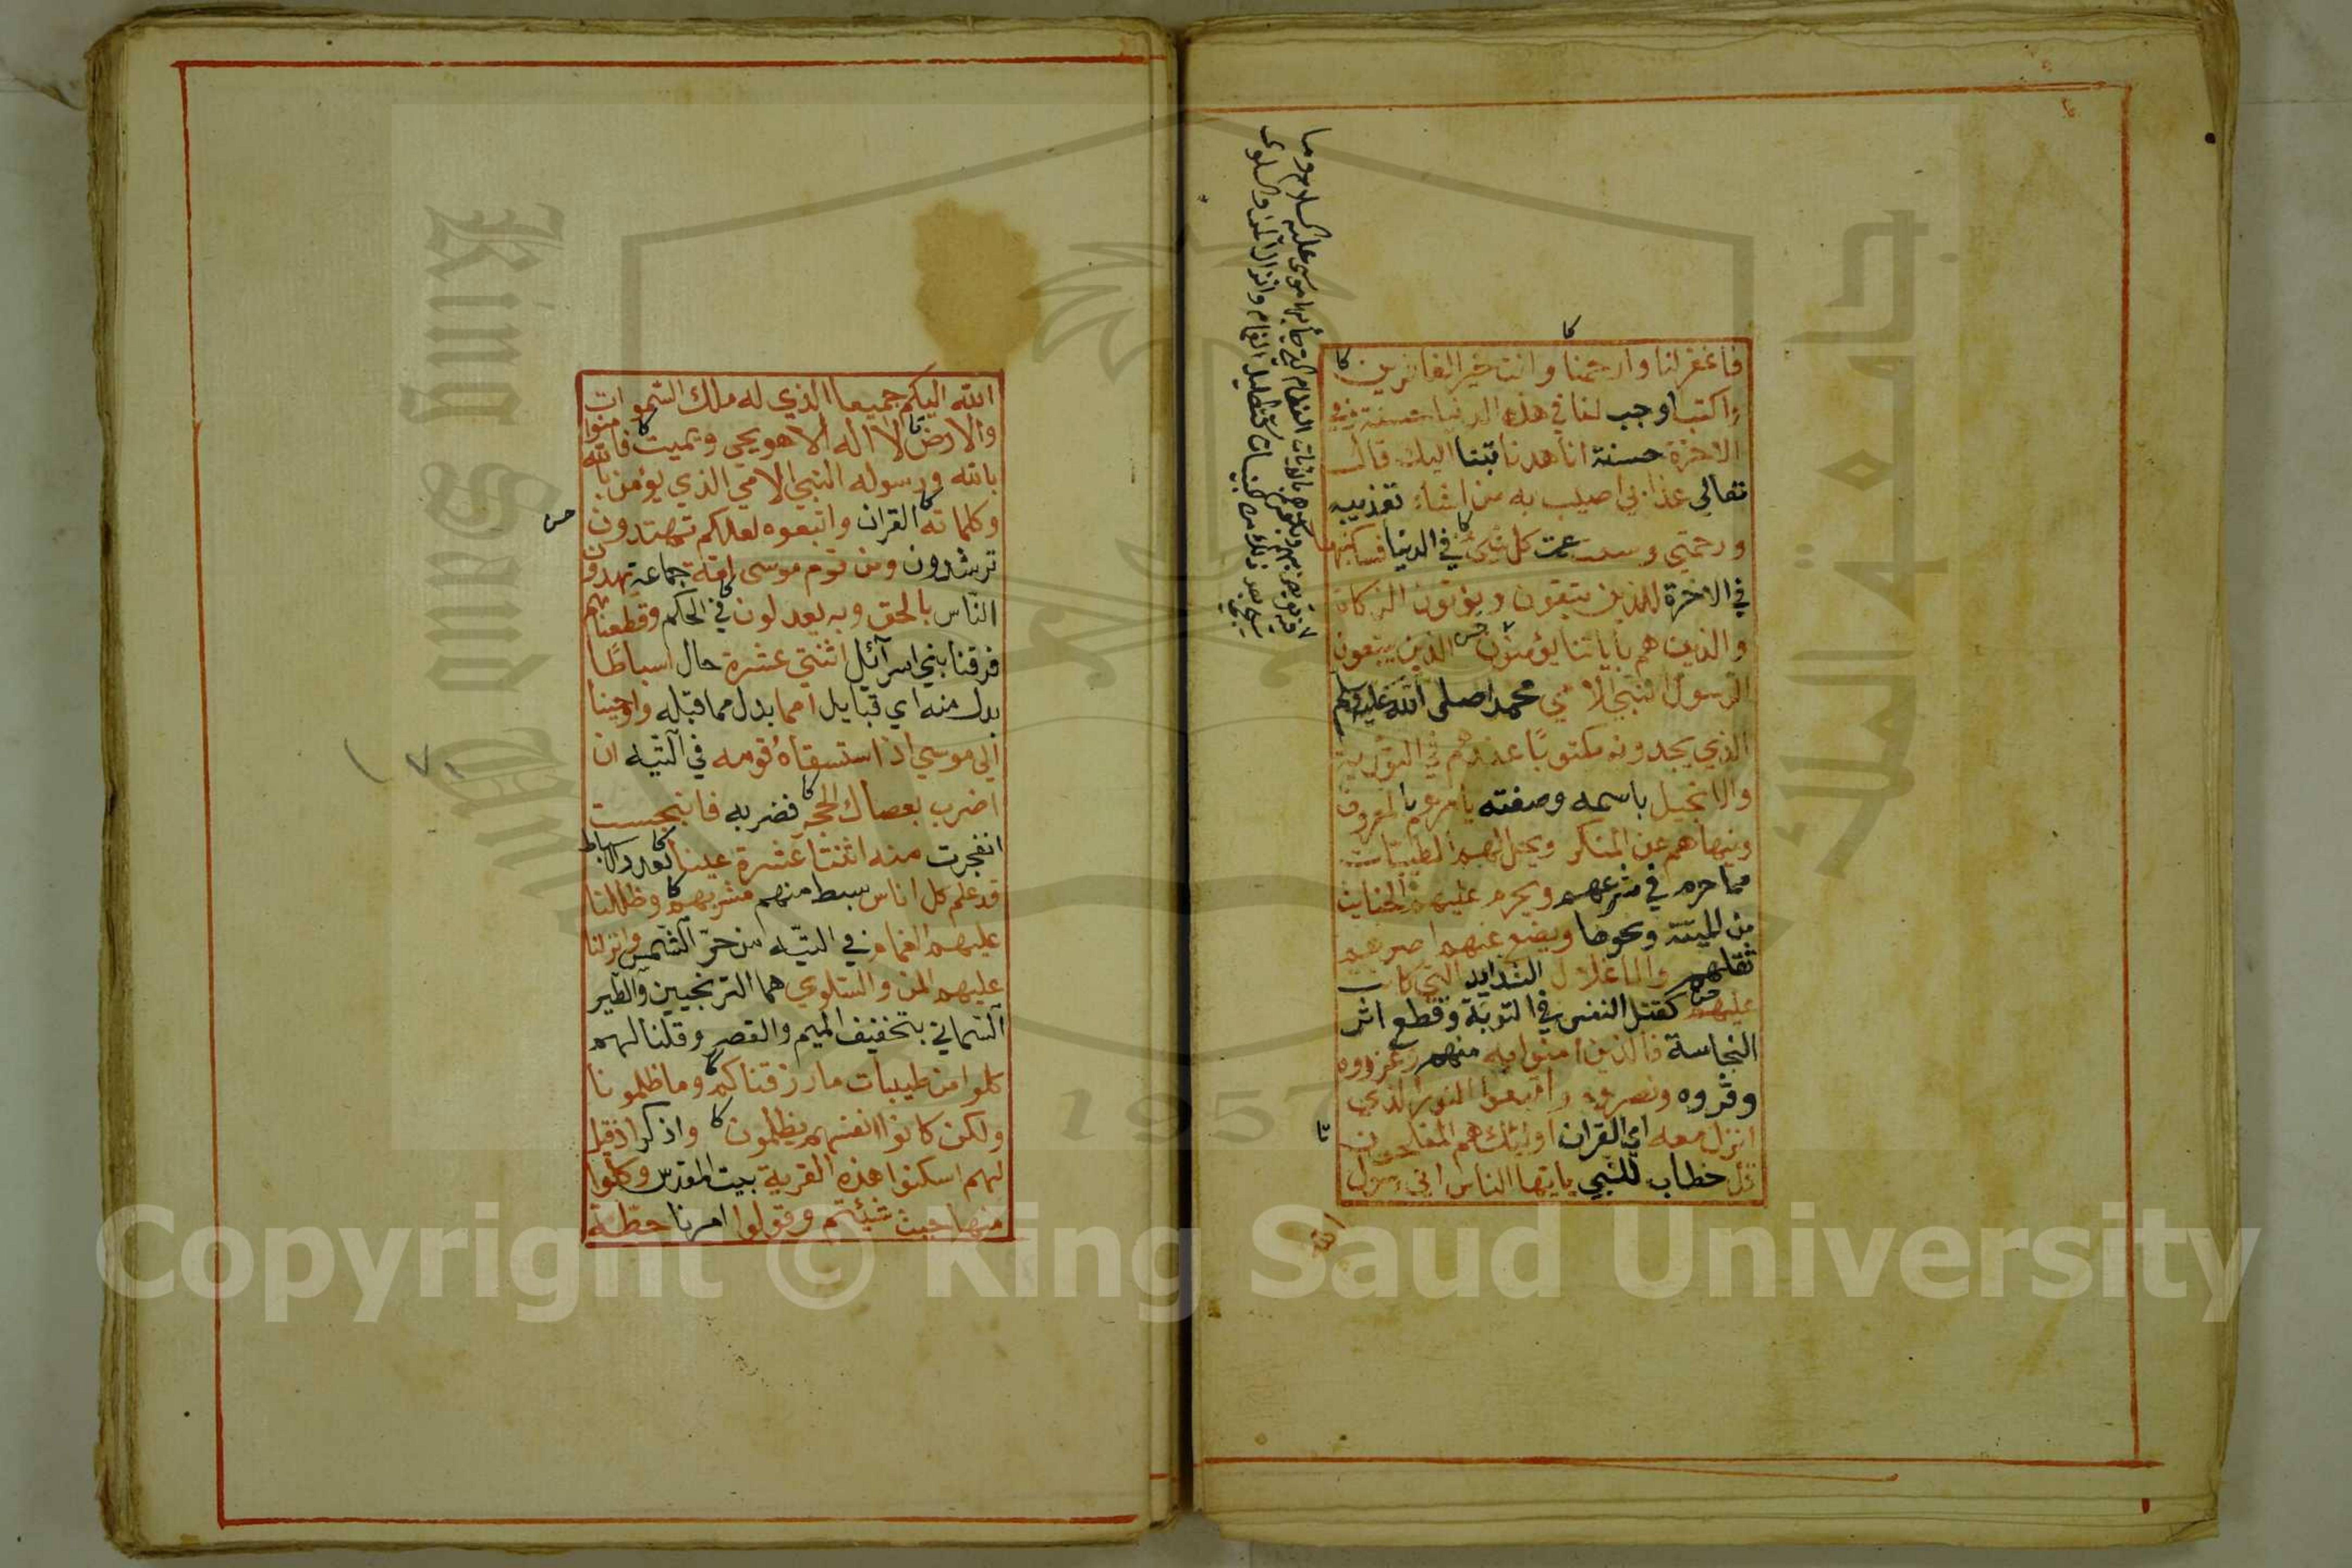 فاغفرلنا وارحمنا وانت خير الغافرين
واكتب اوجب لنا في هذه الدنيا حسنة وفي
الاخرة حسنة انا هدنا تبنا اليك قال
تعالي عذابي اصيب به من اشاء تعذيبه
ورحمتي وسعت عمت كل شئ في الدنيا فساكتبها
في الاخرة للذين يتقون ويؤتون الزكاة
والذين هم بأياتنا يؤمنون الذين يتبعون
الرسول النبي الامي محمدا صلى الله عليه وسلم
الذي يجدونه مكتوبًا عندهم في التورية
والانجيل باسمه وصفته يأمرهم بالمعروف
وينهاهم عن المنكر ويحل لهم الطيبات
مما حرم في شرعهم ويحرم عليهم الخبايث
من الميتة ونحوها ويضع عنهم اصرهم
ثقلهم والاغلال الشدايد التي كانت
عليهم كقتل النفس في التوبة وقطع اثر
النجاسة فالذين امنوا به منهم وعزروه
وقروه ونصروه واتبعوا النور الذي
انزل معه اي القران اولئك هم المفلحون
قل خطاب للنبي يايها الناس اني رسول
الله
الله اليكم جميعا الذي له ملك السموات
والارض لا اله الا هو يحي ويميت فامنوا
بالله ورسوله النبي الامي الذي يؤمن بالله
وكلماته القران واتبعوه لعلكم تهتدون
ترشدون ومن قوم موسى امة جماعة يهدون
الناس بالحق وبه يعدلون في الحكم وقطعناهم
فرقنا بني اسرآئل اثنتي عشرة حال اسباطًا
بدل منه اي قبايل امما بدل مما قبله واوحينا
الي موسي اذ استسقاه قومه في التيه ان
اضرب بعصاك الحجر فضربه فانبجست
انفجرت منه اثنتا عشرة عينا بعدد الاسباط
قد علم كل اناس سبط منهم مشربهم وظللنا
عليهم الغمام في التيه من حرّ الشمس وانزلنا
عليهم المن والسلوي هما الترنجبين والطير
السماني بتخفيف الميم والقصر وقلنا لهم
كلوا من طيبات ما رزقناكم وما ظلمونا
ولكن كانوا انفسهم يظلمون واذكر اذ قيل
لهم اسكنوا هذه القرية بيت المقدس وكلوا
منها حيث شئتم وقولوا امرنا حطة
جامعة الملك سعود
King Saud University
1957
Copyright © King Saud University